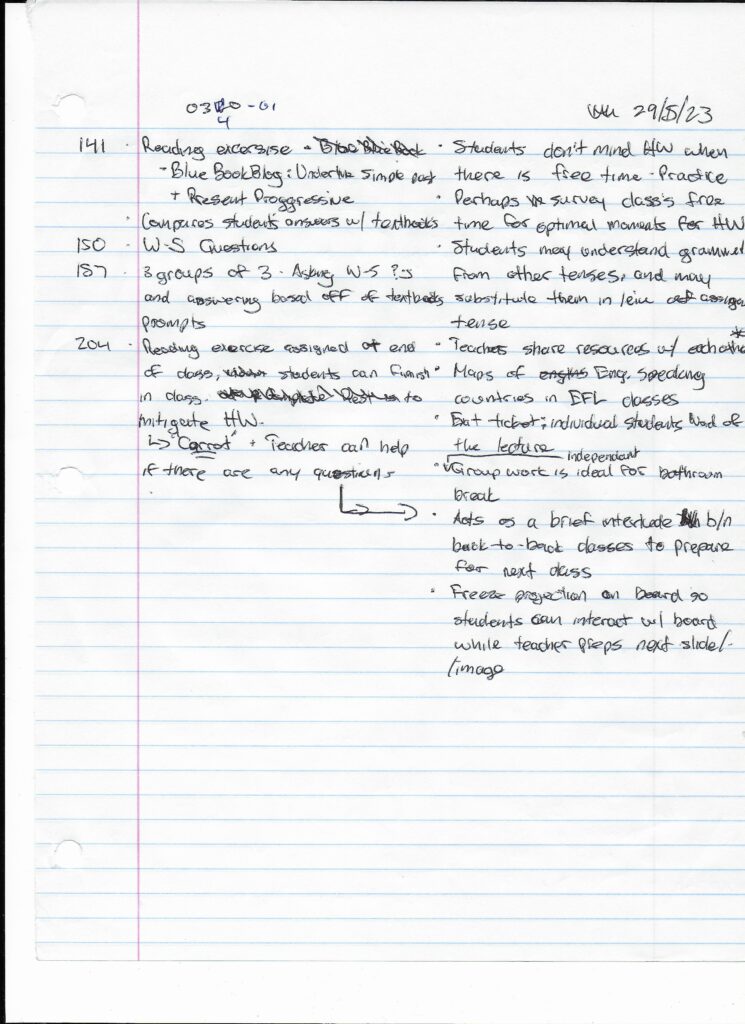 0320-01
4
29/8/23
141 · Reading excersise - Blue Blue Book
- Blue Book Blog: Underline simple past
+ Present Proggressive
· Compares students answers w/ textbooks
150 · W-S Questions
157 · 3 groups of 3 - Asking W-S ?'s
and answering based off of textbooks
prompts
204 · Reading exercise assigned at end
of class, students can finish
in class. to
mitigate HW.
↳ "Carrot" + Teacher can help
if there are any questions
· Students don't mind HW when
there is free time - Practice
· Perhaps survey class's free
time for optimal moments for HW
· Students may understand grammar
from other tenses, and may
substitute them in leiu of assign
tense
*
· Teachers share resources w/ eachother
· Maps of Eng. speaking
countries in EFL classes
· Exit ticket; individual students of
the lecture
independent
· Group work is ideal for bathroom
break
· Acts as a brief interlude b/n
back-to-back classes to prepare
for next class
· Freeze projection on board so
students can interact w/ board
while teacher preps next slide/-
/image